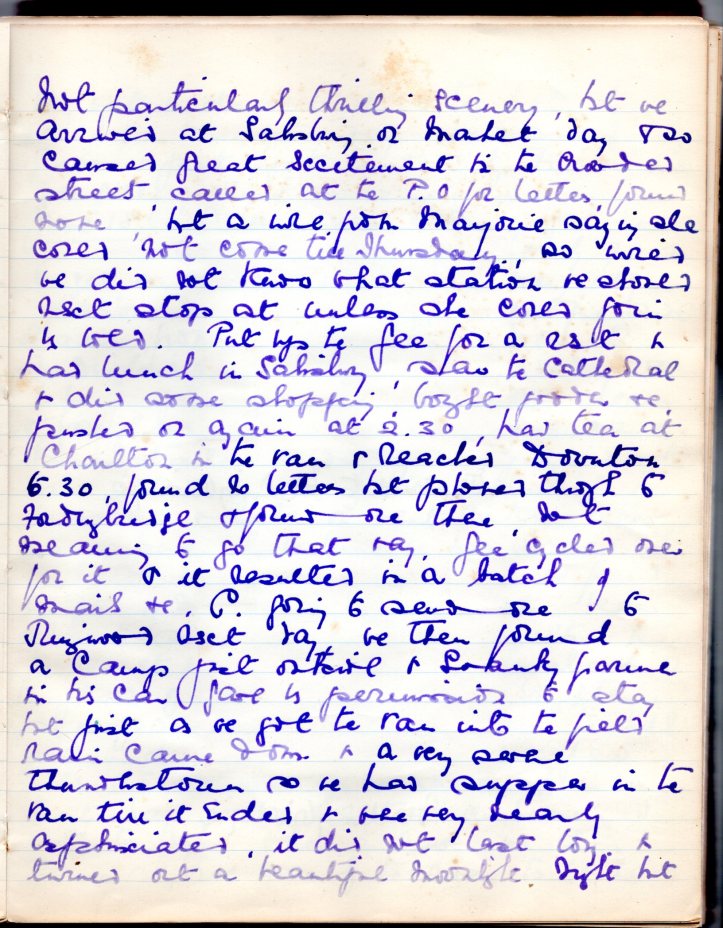 Not particularly thrilling scenery, but we
arrived at Salisbury on Market day & so
caused great excitement in the crowded
street, called at the P.O for letters, found
none, but a wire from Marjorie saying she
could not come till Thursday, so wired
we did not know what station we should
next stop at unless she could join
us Wed. Put up the gee for a rest &
had lunch in Salisbury, saw the Cathedral
& did some shopping, bought
pushed on again at 2.30, had tea at
Charlton in the van & reached Downton
6.30, found no letters but phoned through to
Fordingbridge & found one there, not
meaning to go that way, gee cycled over
for it & it resulted in a batch of
mail P. going to send one to
Ringwood next day, we then found
a Camp just outside & farmer
in his car gave us permission to stay
but just as we got the van into the field
rain came down & a very severe
thunderstorm so we had supper in the
van till it ended & were very nearly
asphixiated, it did not last long &
turned out a beautiful moonlight night but